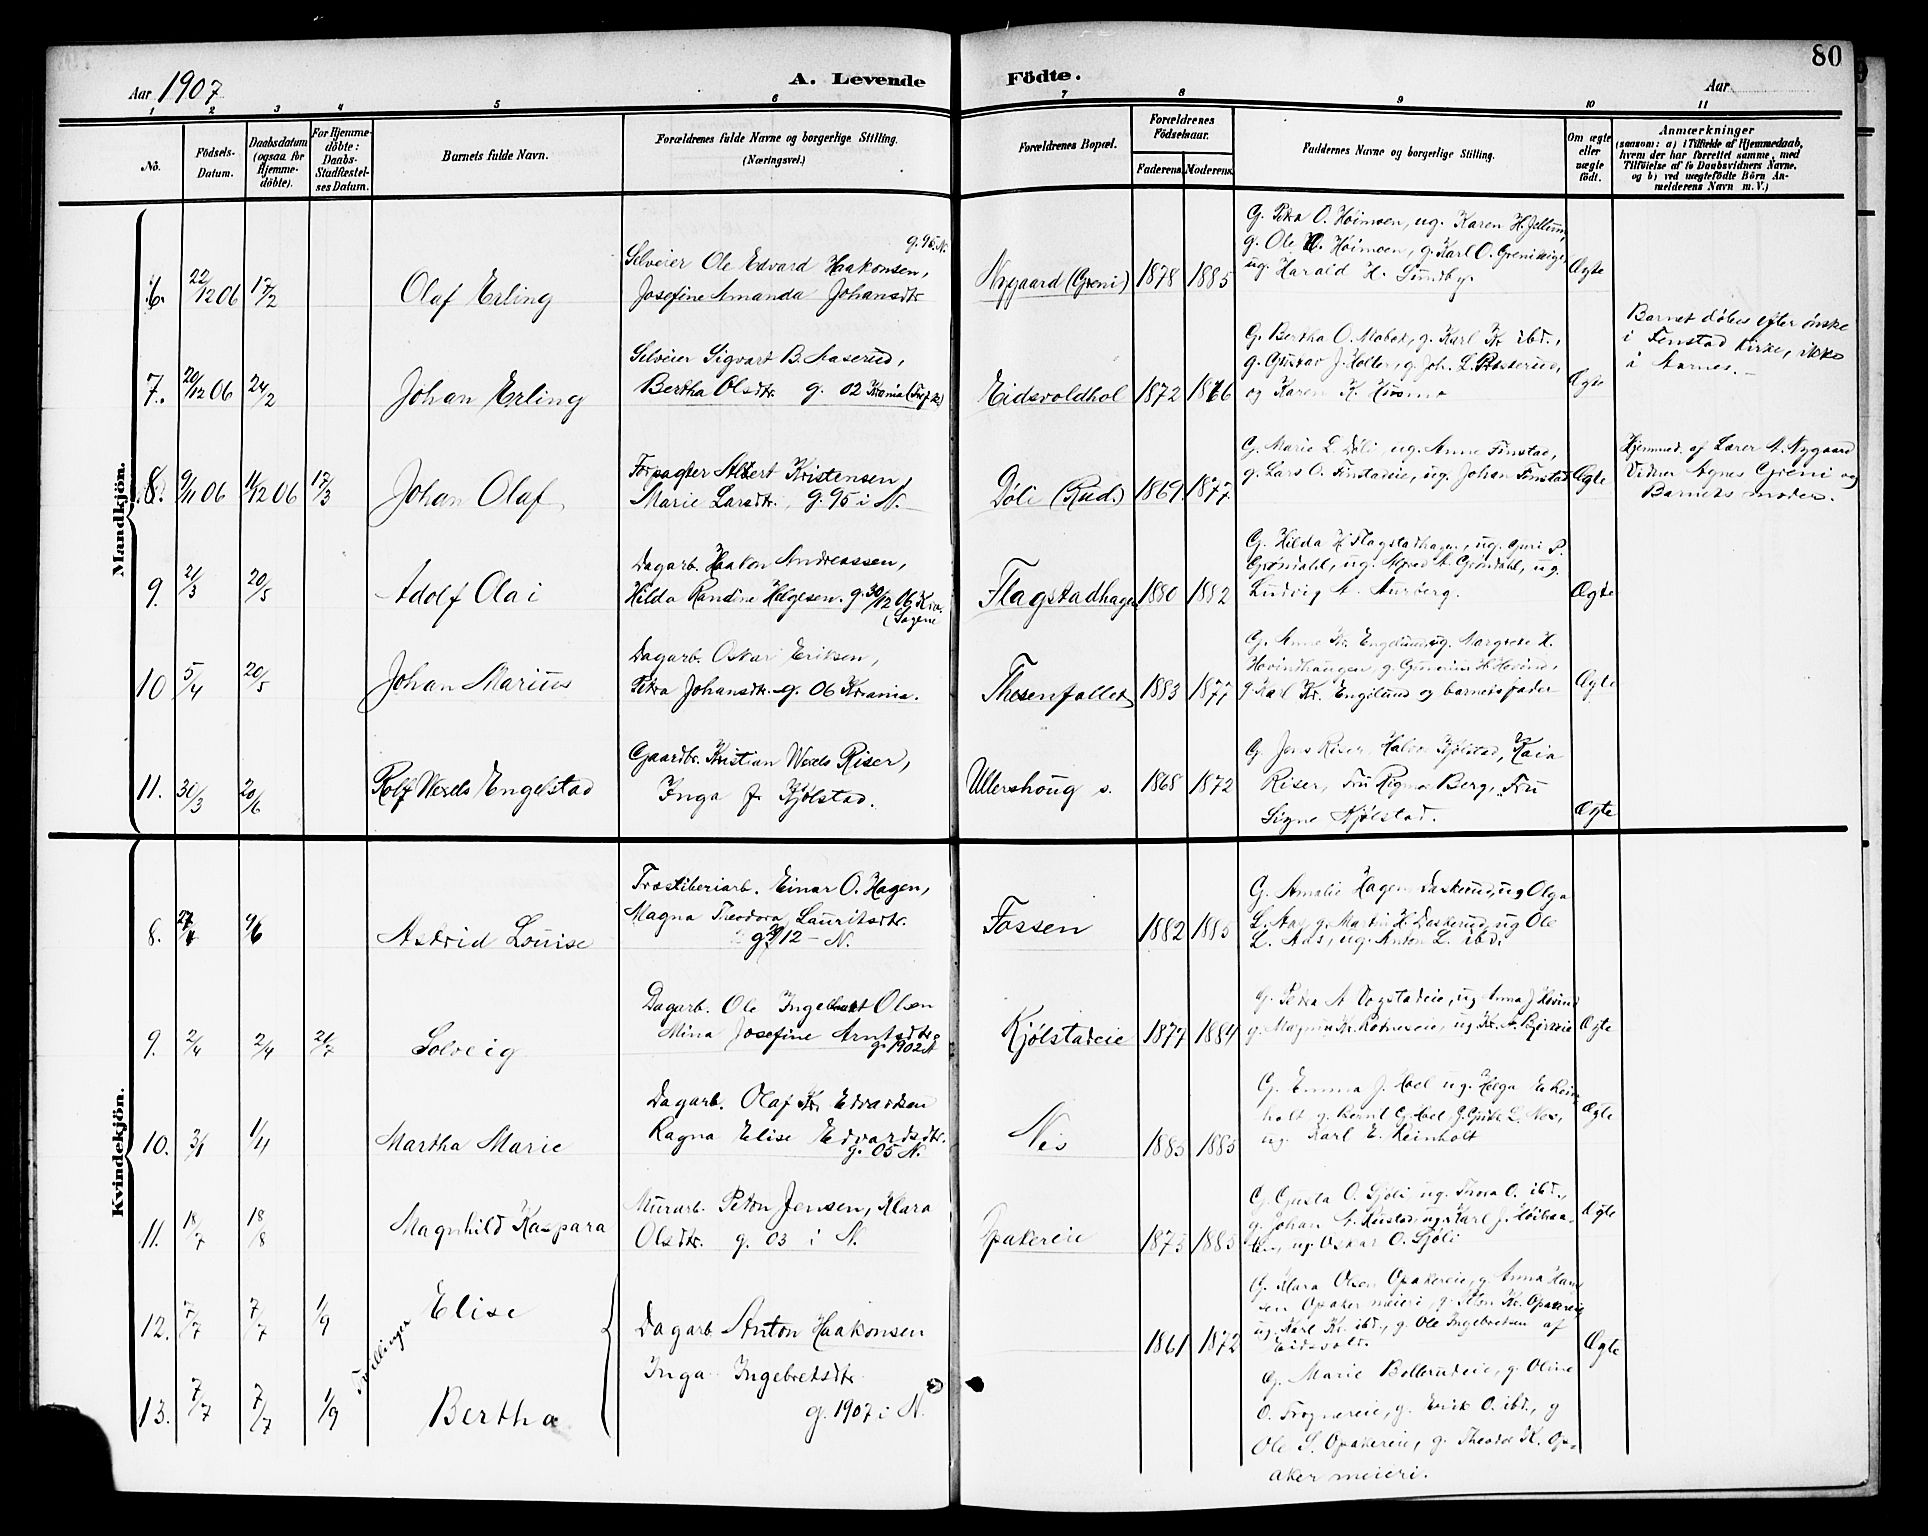 80
Aar 1907
A. Levende Födte.
Aar
1 2 3 4 5 6 7 8 9 10 11
Nö.
Födsels-Datum.
Daabsdatum (ogsaa for Hjemme-döbte).
For Hjemme-döbte: Daabs-Stadfæstel-ses Datum.
Barnets fulde Navn.
Forældrenes fulde Navne og borgerlige Stilling.
(Næringsvei.)
Forældrenes Bopæl.
Forældrenes Födselsaar.
Faderens. Moderens.
Faddernes Navne og borgerlige Stilling.
Om ægte eller uægte födt.
Anmærkninger
(saasom: a) i Tilfælde af Hjemmedaab,
hvem der har forrettet samme, med
Tilföielse af to Daabsvidners Navne.
og b) ved uægtefödte Börn An-
melderens Navn m. V.)
Mandkjön.
6. 22/12 06 17/2 Olaf Erling
Selveier Ole Edvard Haakonsen,
Josefine Amanda Johansdtr
Nygaard (Greni) 1878 1885
G. Petra O. Høimoen, ug. Karen H. Jellum,
g. Ole H. Høimoen, g. Karl O. Grenivige,
ug. Harald H. Sundby.
Ægte
7. 20/12 06 24/2 Johan Erling
Selveier Sigvart B. Aaserud,
Bertha Olsdtr. g. 02 Krania
Eidsvoldhol 1872 1876
G. Bertha O. Mobæk, g. Karl Kr ibd.,
g. Gustav J. Holler, g. Joh. L.
og Karen K. Husmo
Ægte
Barnet døbes efter ønske
i Fenstad kirke, ikke
i Aarnes.
8. 9/11 06 11/12 06 17/3 Johan Olaf
Forpagter Albert Kristensen,
Marie Larsdtr., g. 95 i N.
Døli (Rud.) 1869 1877
G. Marie L. Døli, ug. Anne Finstad,
g. Lars O. Finstadeie, ug. Johan Finstad
Ægte
Hjemmed. af Lærer A. Nygaard
Vidner Agnes Greni og
Barnets moder.
9. 21/3 20/5 Adolf Olai
Dagarb. Haakon Andreassen,
Hilda Randine Helgesen. g. 30/12 06 Kra.
(Sagene
Flagstadhagen 1880 1882
G. Hilda H. Flagstadhagen, ug. Guri P.
Grøndahl, ug. Alfred A. Grøndahl, ug.
Ludvig A. Aurberg.
Ægte
10 5/4 20/5 Johan Marius
Dagarb. Oskar Eriksen,
Petra Johansdtr. g. 06 Krania.
Thesenfallet 1883 1877
G. Anne Kr. Englund, ug. Margrete H.
Hovindhaugen, g. Gunerius H. Hovind,
g. Karl Kr. Englund og barnets fader
Ægte
11. 31/3 20/6 Rolf Wexels Engelstad
Gaardbr. Kristian Wexels Riser,
Inga f. Kjølstad.
Ullershoug s. 1868 1872
G. Jens Riser, Halvor Kjølstad, Kaia
Riser, Fru Ragna Berg, Fru
Signe Kjølstad.
Ægte
Kvindekjön.
8. 27/4 4/6 Astrid Louise
Træsliberiarb. Einar O. Hagen,
Magna Theodora Lauritsdtr.
Fossen 1882 1885
G. Amalie Hagen Daskerud, ug Olga
L. Aas, g. Martin H. Daskerud, ug Ole
L. Aas, ug. Anton L. ibd.
9. 2/4 2/4 21/7 Solveig
Dagarb. Ole Ingebret Olsen
Mina Josefine Arntsdtr.
g. 1902 N
Kjølstadeie 1877 1884
G. Petra A. Vogstadeie, ug. Anna J. Hovind
g. Magnus Kr.
Ægte
10. 3/1 1/4 Martha Marie
Dagarb. Olaf Kr. Edvardsen
Ragna Elise Edvardsdtr.
g. 05 N.
Nes 1883 1885
G. Emma J. Hoel ug. Helga E. Rein-
holt g. Bernt G. Hoel, L. Nes,
ug. Karl E. Reinholt
Ægte
11. 18/7 18/8 Magnhild Kaspara
Murarb. Petter Jensen, Klara
Olsdtr. g. 03 i N.
Opakereie 1875 1885
G. Gusta O. Sjøli, ug. Thora O. ibd.,
g. Johan A. Rustad, ug. Karl J.
ug. Oskar O. Sjøli
Ægte
12. 7/7 7/7 1/9 Elise
Tvillinger
13. 7/7 7/7 1/9 Bertha
Dagarb Anton Haakonsen
Inga Ingebretsdtr.
g. 1907 i N.
1861 1872
G. Klara Olsen Opakereie, g. Anna Han-
sen Opaker meieri, g. Petter Kr. Opakereie,
ug. Karl Kr. ibd., g. Ole Ingebretsen af
Eidsvold.
Ægte
G. Marie Bollerudeie, g. Oline
O. Trognereie, g. Erik O. ibd., g
Ole S. Opakereie, g. Theodor K. Op-
aker meieri.